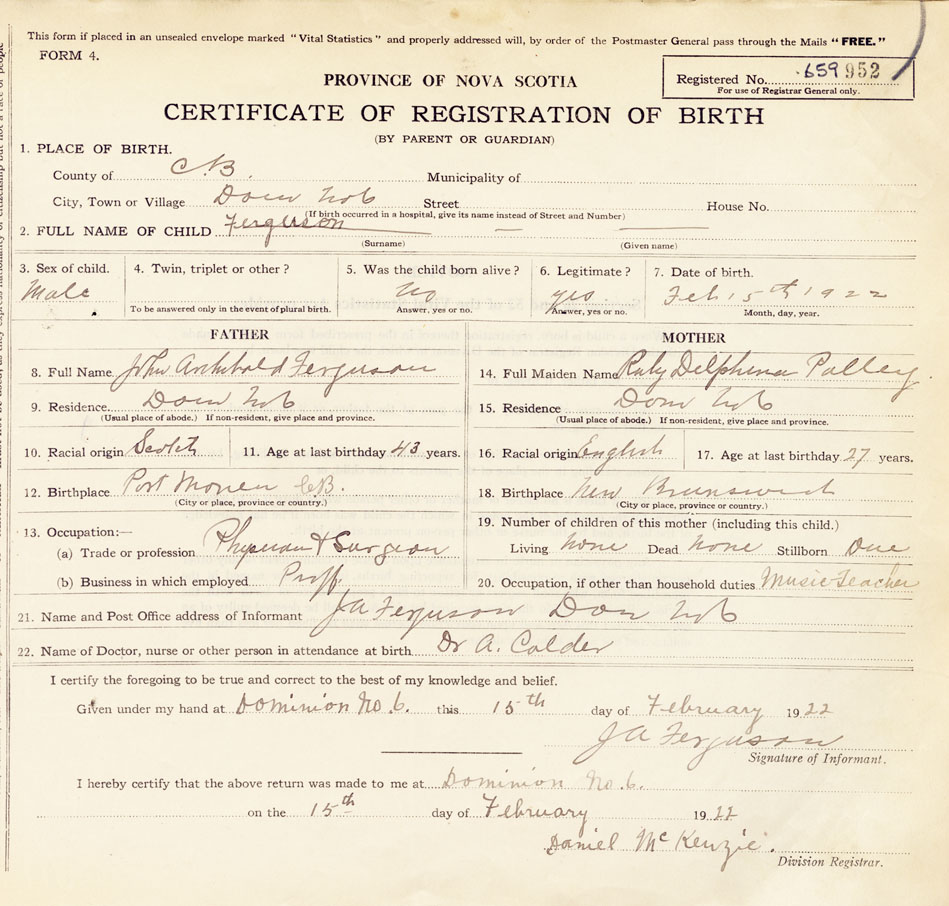 This form if placed in an unsealed envelope marked "Vital Statistics" and properly addressed will, by order of the Postmaster General pass through the Mails "FREE."
FORM 4.
Registered No. 659 952
For use of Registrar General only.
PROVINCE OF NOVA SCOTIA
CERTIFICATE OF REGISTRATION OF BIRTH
(BY PARENT OR GUARDIAN)
1. PLACE OF BIRTH.
County of C.B. Municipality of
City, Town or Village Dom No 6 Street House No.
(If birth occurred in a hospital, give its name instead of Street and Number)
2. FULL NAME OF CHILD Ferguson
(Surname) (Given name)
3. Sex of child. 4. Twin, triplet or other? 5. Was the child born alive? 6. Legitimate? 7. Date of birth.
Male No yes Feb 15th 1922
To be answered only in the event of plural birth. Answer, yes or no. Answer, yes or no. Month, day, year.
FATHER MOTHER
8. Full Name John Archibald Ferguson 14. Full Maiden Name Ruby Delphina Polley
9. Residence Dom No 6 15. Residence Dom No 6
(Usual place of abode.) If non-resident, give place and province. (Usual place of abode.) If non-resident, give place and province.
10. Racial origin Scotch 11. Age at last birthday 43 years. 16. Racial origin English 17. Age at last birthday 27 years.
12. Birthplace Port Morien C.B. 18. Birthplace New Brunswick
(City or place, province or country.) (City or place, province or country.)
13. Occupation:— 19. Number of children of this mother (including this child.)
(a) Trade or profession Physician & Surgeon Living None Dead None Stillborn One
(b) Business in which employed Proff. 20. Occupation, if other than household duties Music Teacher
21. Name and Post Office address of Informant J A Ferguson Dom No 6
22. Name of Doctor, nurse or other person in attendance at birth Dr A. Calder
I certify the foregoing to be true and correct to the best of my knowledge and belief.
Given under my hand at Dominion No. 6. this 15th day of February 1922
J A Ferguson
Signature of Informant.
I hereby certify that the above return was made to me at Dominion No. 6.
on the 15th day of February 1922
Daniel McKenzie.
Division Registrar.